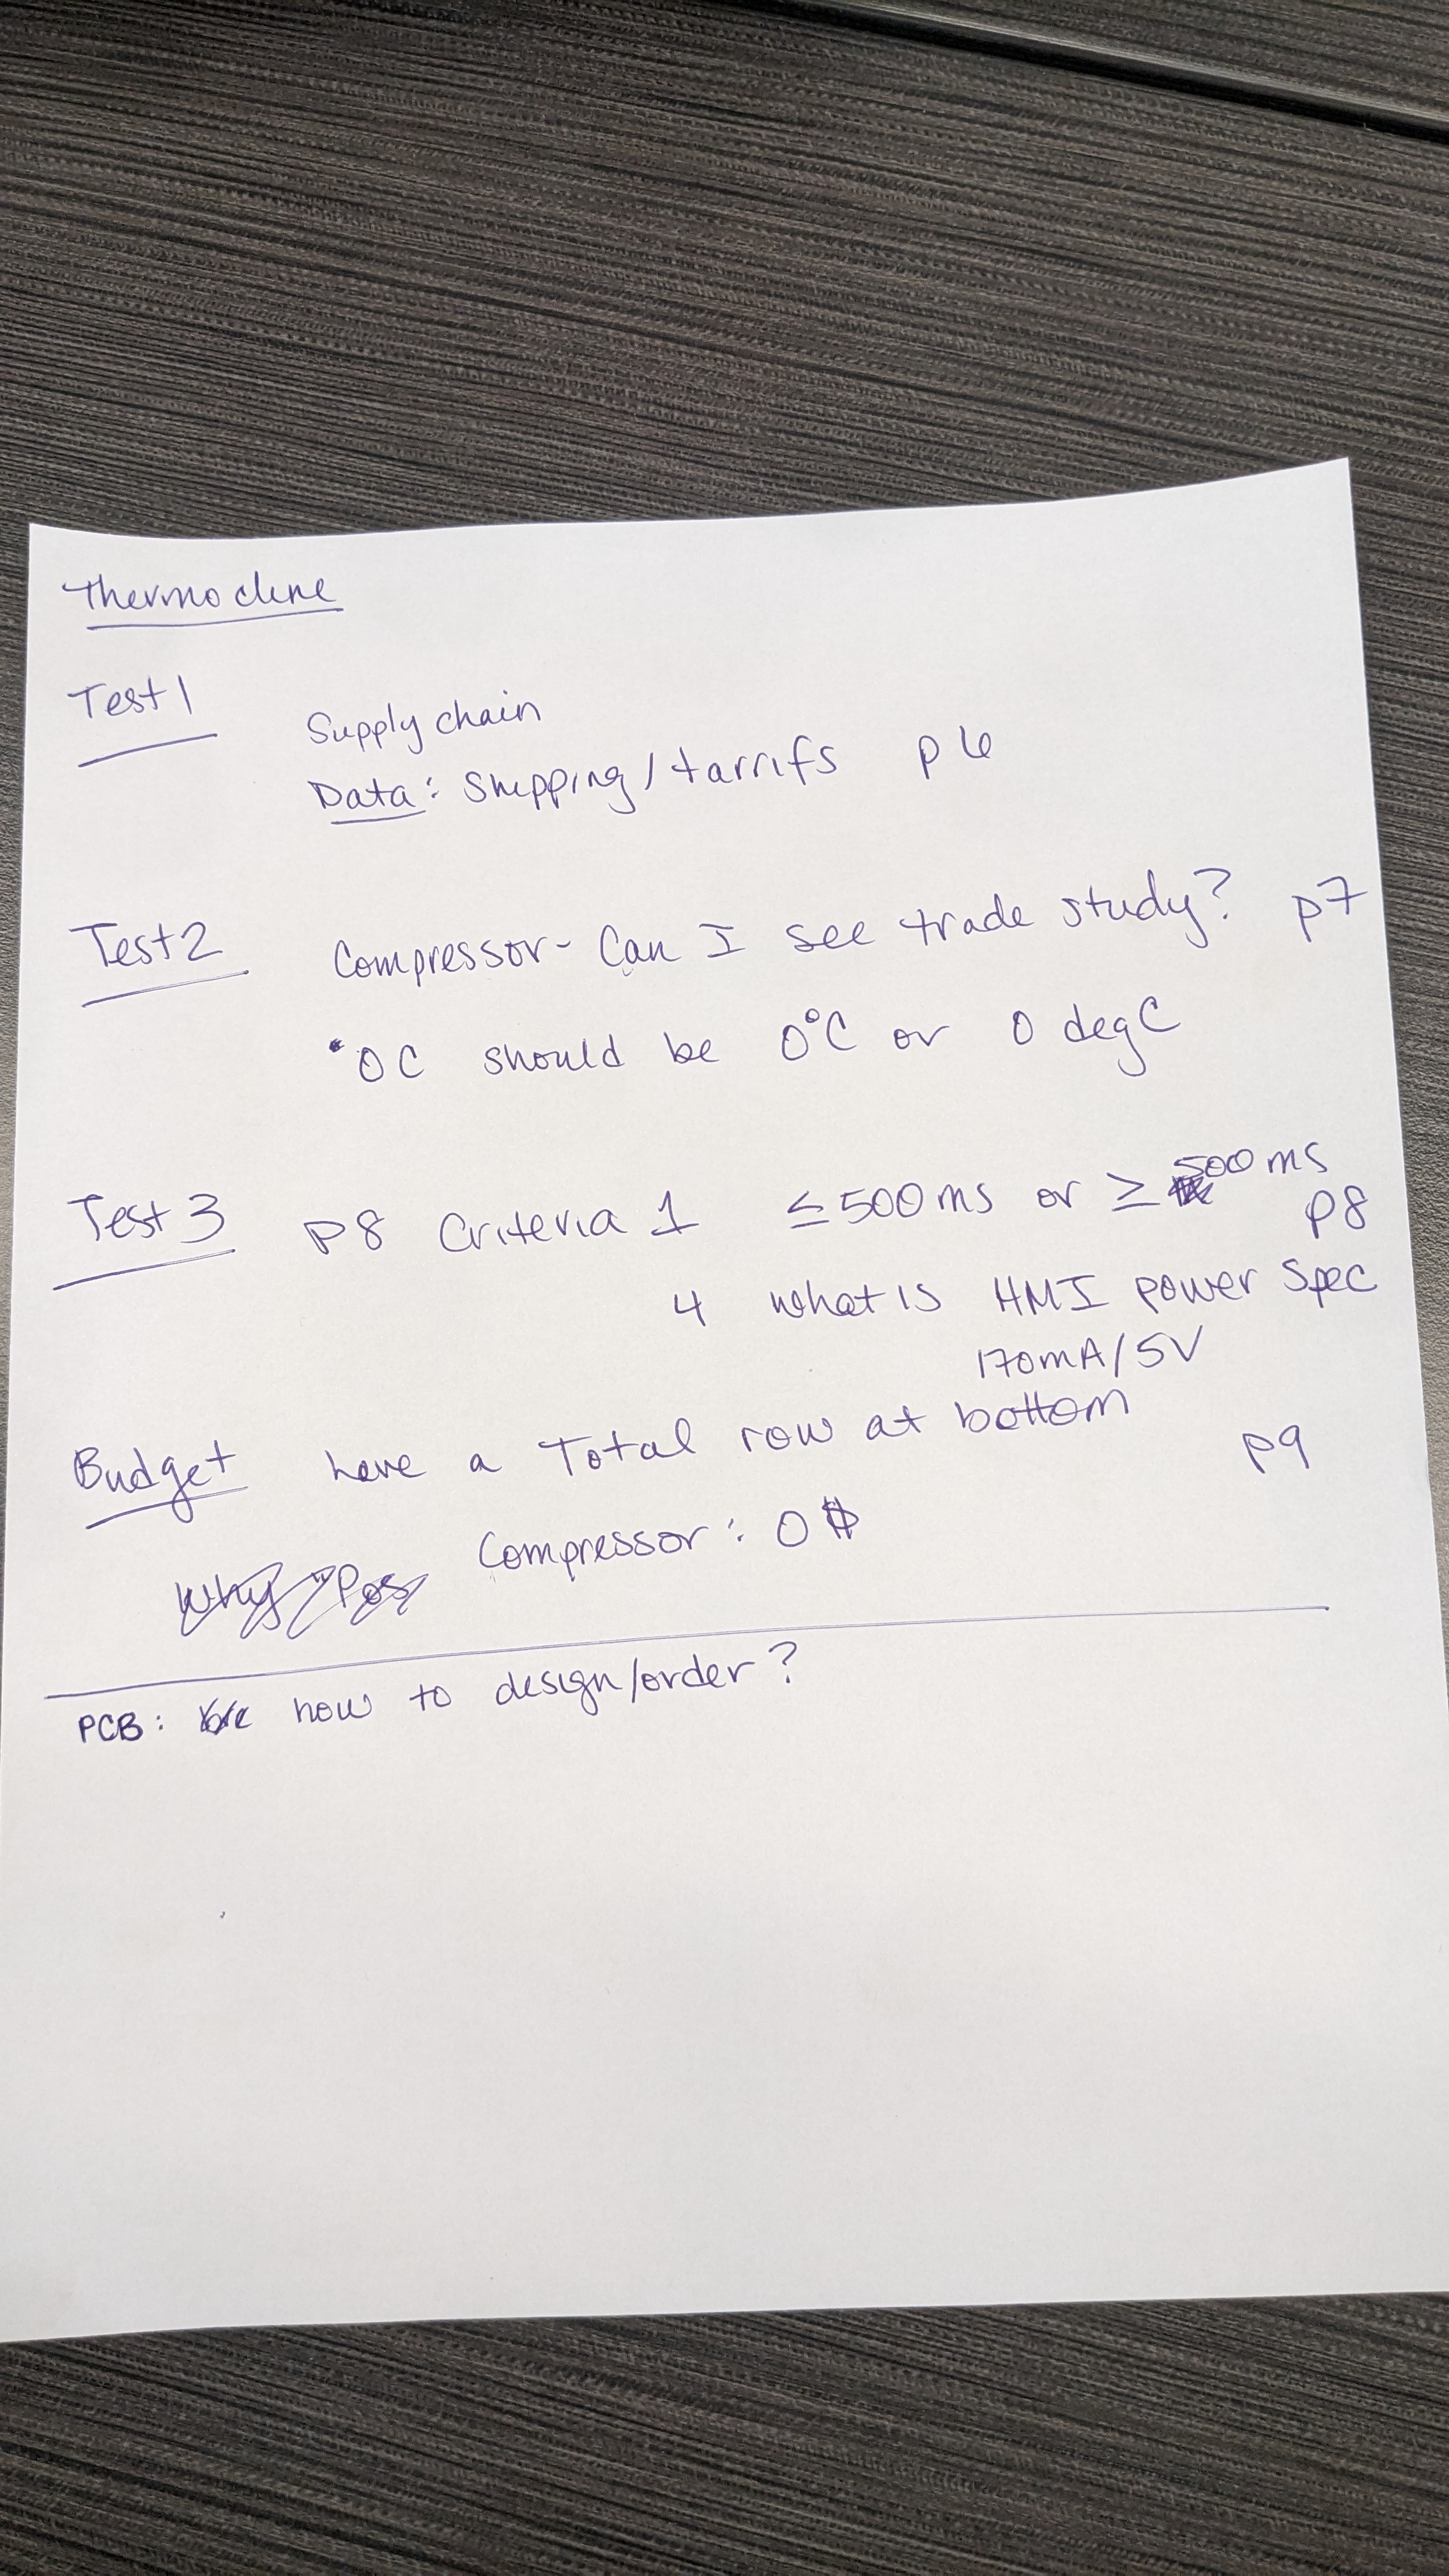 Thermocline
Test 1
Supply chain
Data: Shipping/tarrifs p 6
Test 2 Compressor - Can I see trade study? p7
• 0 C should be 0°C or 0 deg C
Test 3 p8 Criteria 1 ≤ 500 ms or ≥ 500 ms
p8
4 what is HMI power spec
170mA/5V
Budget have a Total row at bottom p9
Compressor: 0 $
Why "Pos
PCB: how to design/order?